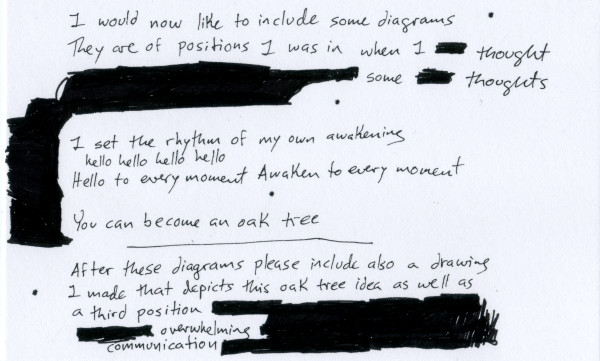 I would now like to include some diagrams
They are of positions I was in when I thought
some thoughts
I set the rhythm of my own awakening
hello hello hello hello
Hello to every moment Awaken to every moment
You can become an oak tree
After these diagrams please include also a drawing
I made that depicts this oak tree idea as well as
a third position
overwhelming
communication